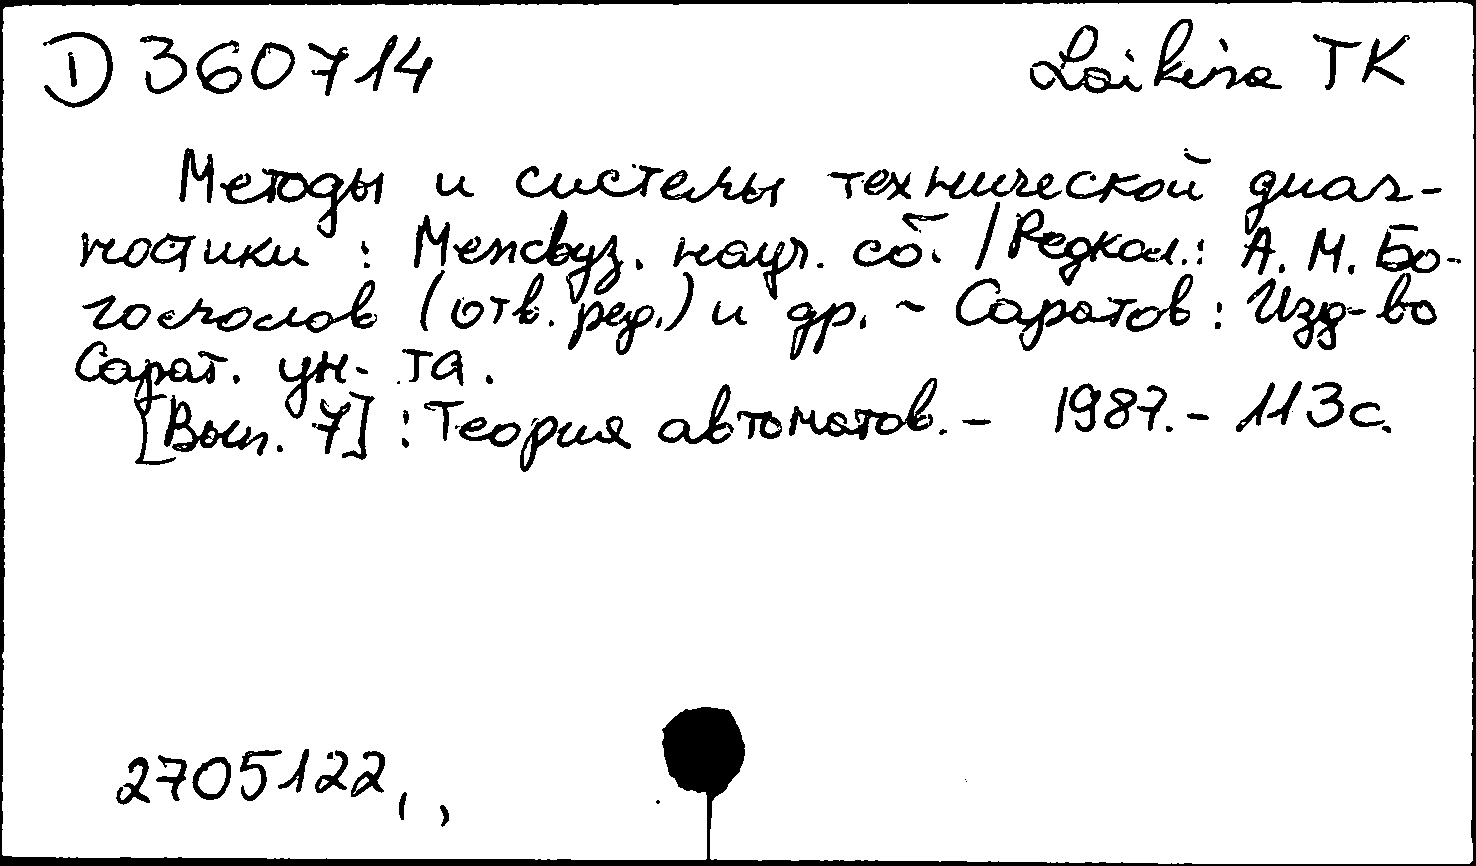 D 360714 Loikina TK
Методы и системы технической диаг-
ностики : Межвуз. науч. сб. / Редкол.: А. М. Бо-
гомолов (отв. ред.) и др. - Саратов : Изд-во
Сарат. ун-та.
[Вып. 7] : Теория автоматов. - 1987. - 113 с.
2705122, ,